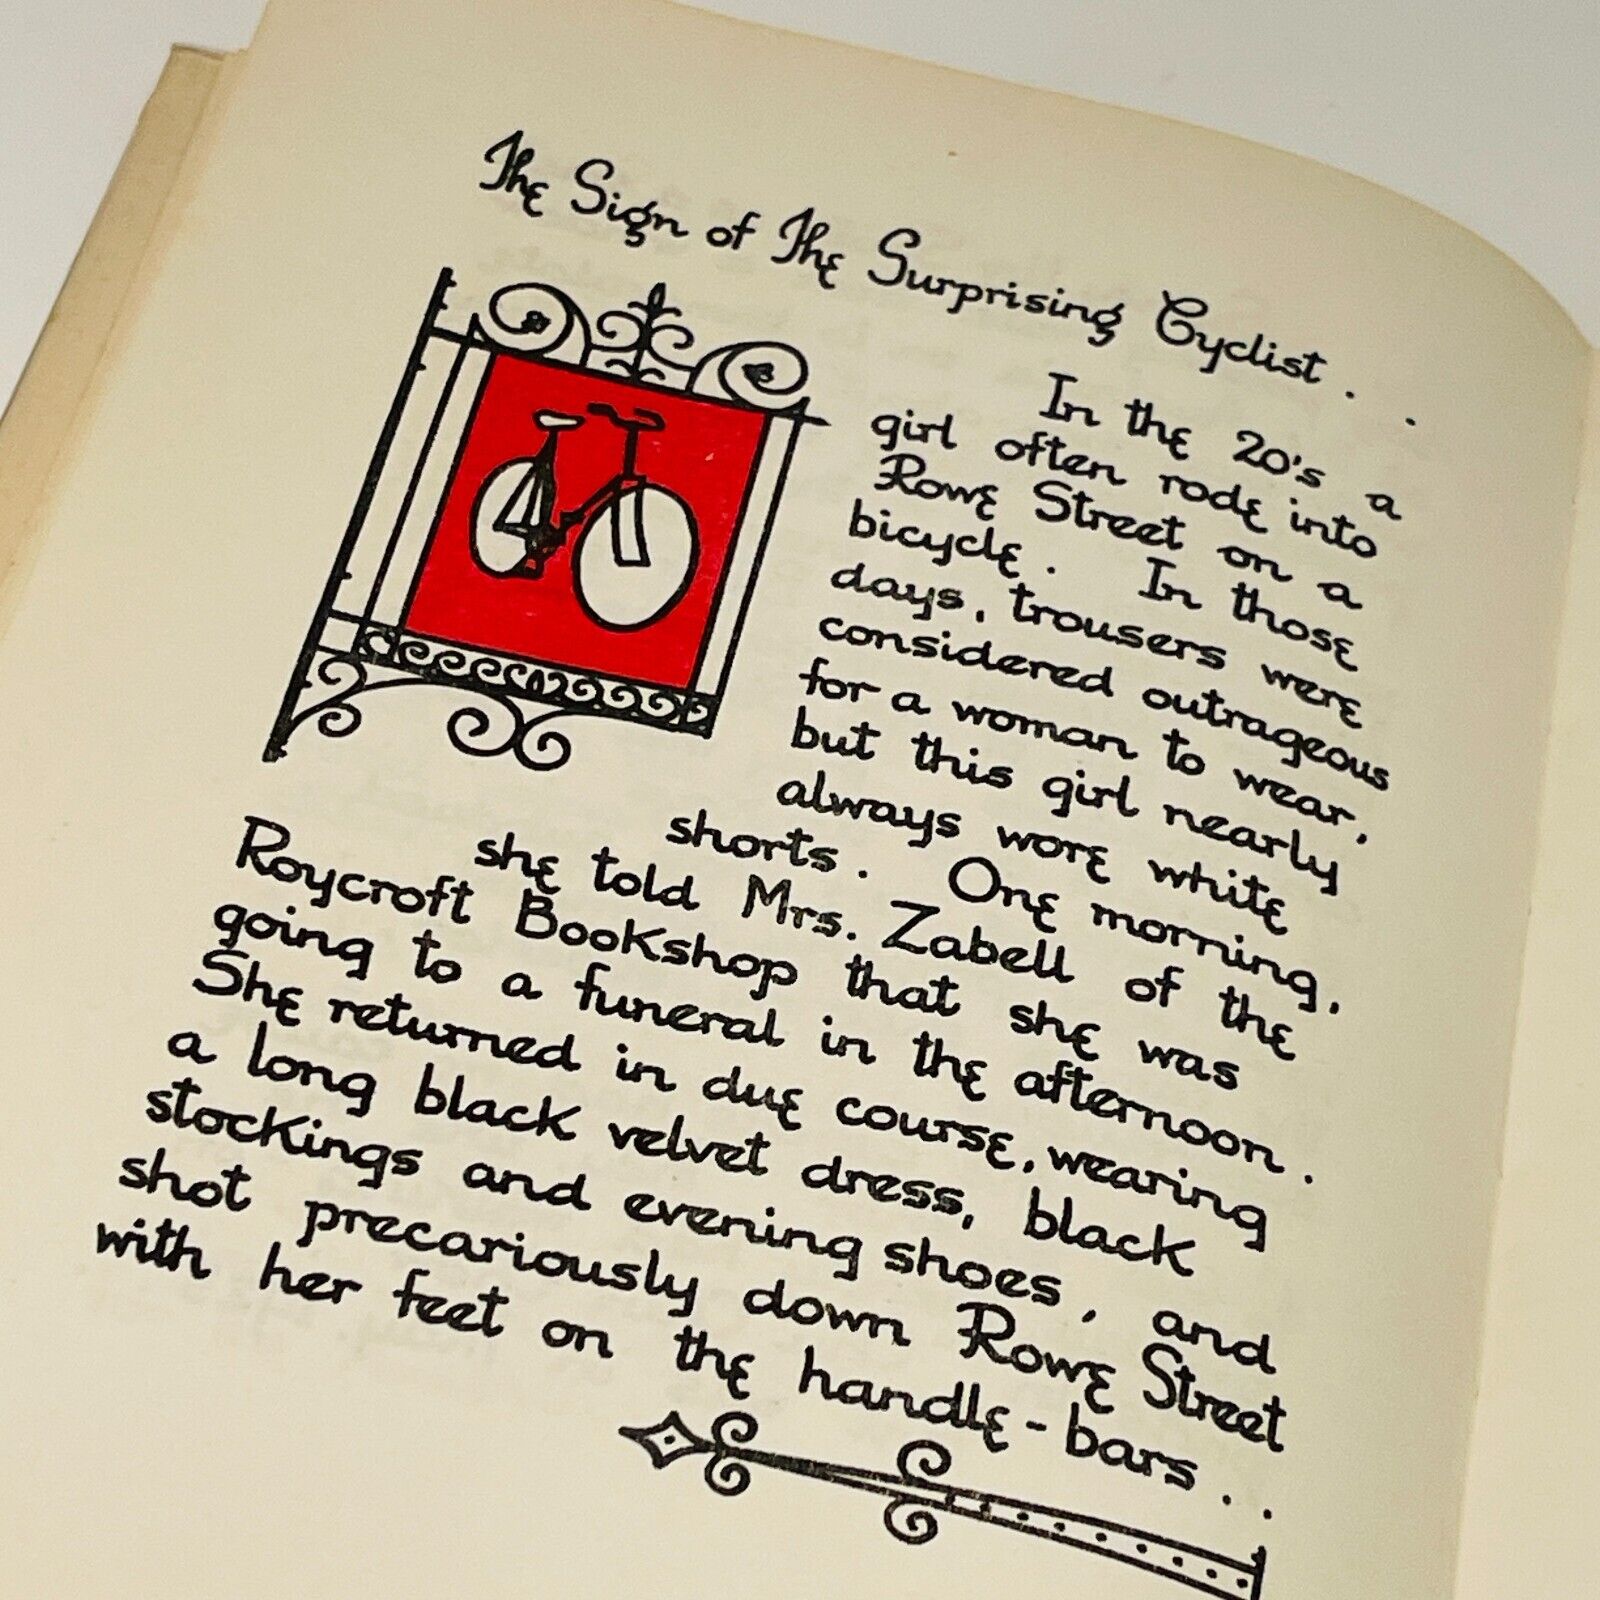 The Sign of The Surprising Cyclist . .
In the 20's a
girl often rode into
Rowe Street on a
bicycle. In those
days, trousers were
considered outrageous
for a woman to wear,
but this girl nearly
always wore white
shorts. One morning,
she told Mrs. Zabell of the
Roycroft Bookshop that she was
going to a funeral in the afternoon.
She returned in due course, wearing
a long black velvet dress, black
stockings and evening shoes, and
shot precariously down Rowe Street
with her feet on the handle-bars . .